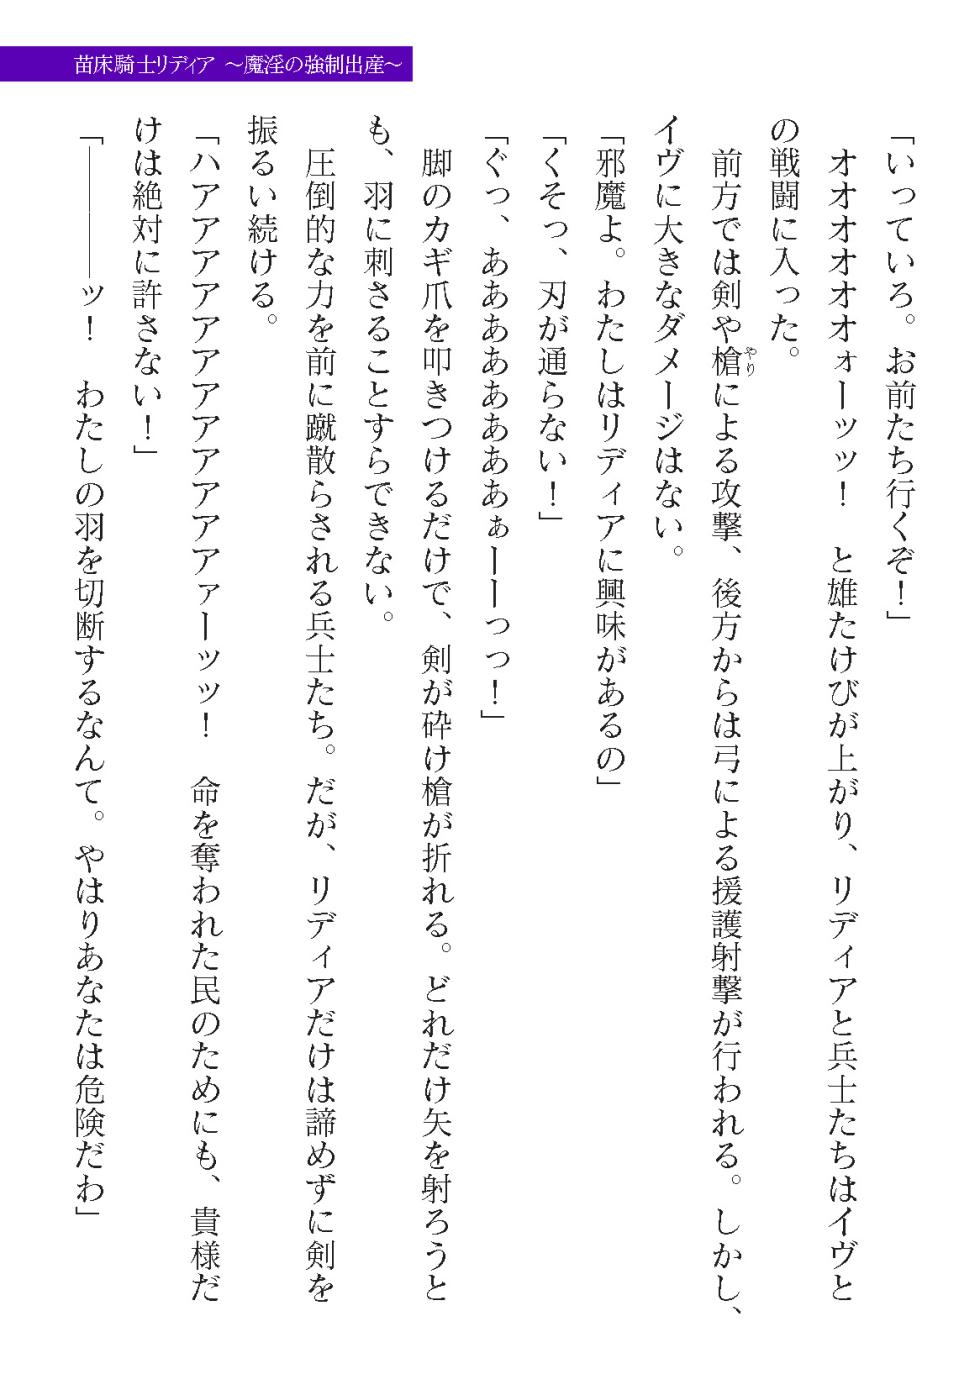 苗床騎士リディア ～魔淫の強制出産～
「いっていろ。お前たち行くぞ！」
　オオオオオオォーッッ！　と雄たけびが上がり、リディアと兵士たちはイヴと
の戦闘に入った。
　前方では剣や槍やりによる攻撃、後方からは弓による援護射撃が行われる。しかし、
イヴに大きなダメージはない。
「邪魔よ。わたしはリディアに興味があるの」
「くそっ、刃が通らない！」
「ぐっ、ああああああああぁーーっっ！」
　脚のカギ爪を叩きつけるだけで、剣が砕け槍が折れる。どれだけ矢を射ろうと
も、羽に刺さることすらできない。
　圧倒的な力を前に蹴散らされる兵士たち。だが、リディアだけは諦めずに剣を
振るい続ける。
「ハアアアアアアアアアアアァーッッ！　命を奪われた民のためにも、貴様だ
けは絶対に許さない！」
「――――ッ！　わたしの羽を切断するなんて。やはりあなたは危険だわ」